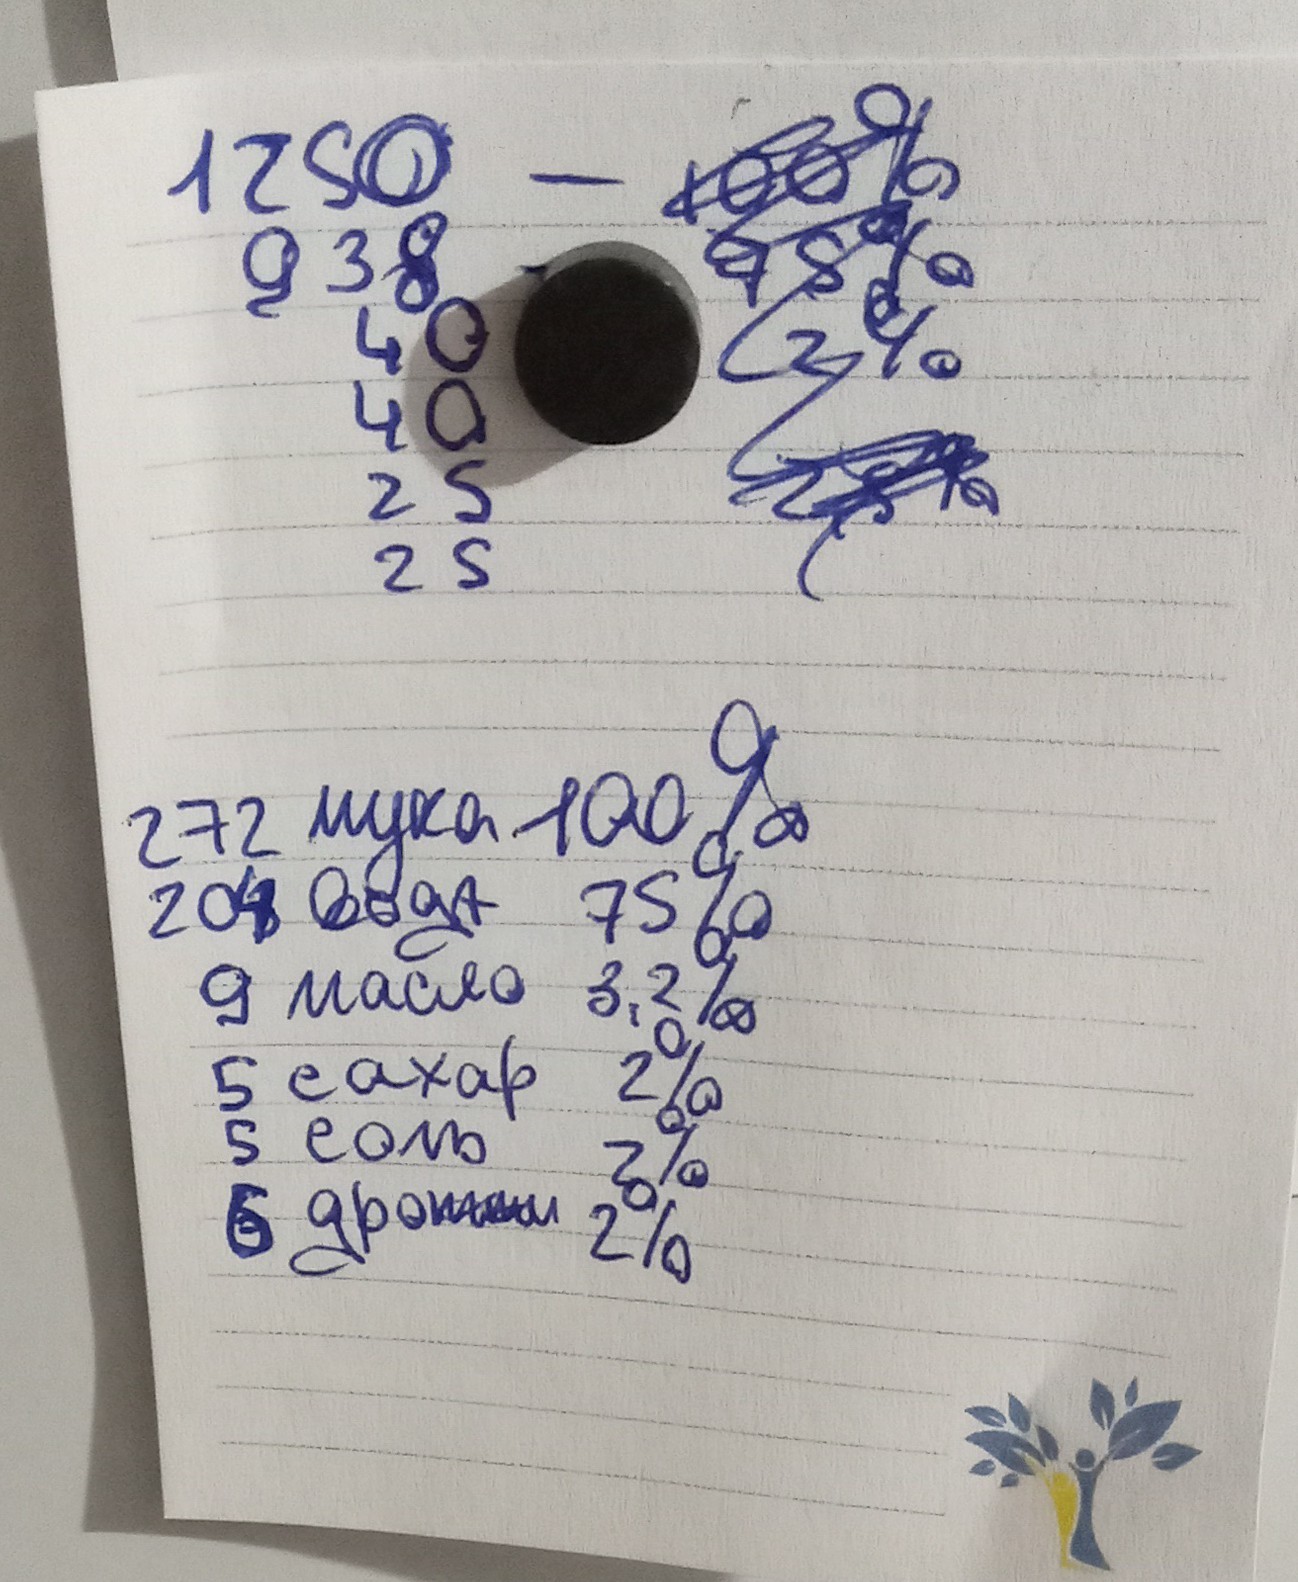 1250 — 100%
938 - 75%
40 2%
40
25 2%
25
272 мука 100%
204 вода 75%
9 масло 3,2%
5 сахар 2%
5 соль 2%
6 дрожжи 2%